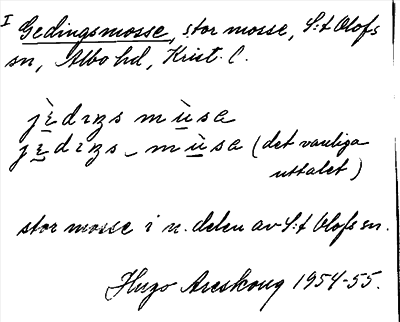 I Gedingsmosse, stor mosse, S:t Olofs
sn, Albo hd, Krist. l.
jèdıŋs mùsa
jèdıŋs - mùsa (det vanliga
uttalet)
stor mosse i n. delen av S:t Olofs sn.
Hugo Areskoug 1954-55.